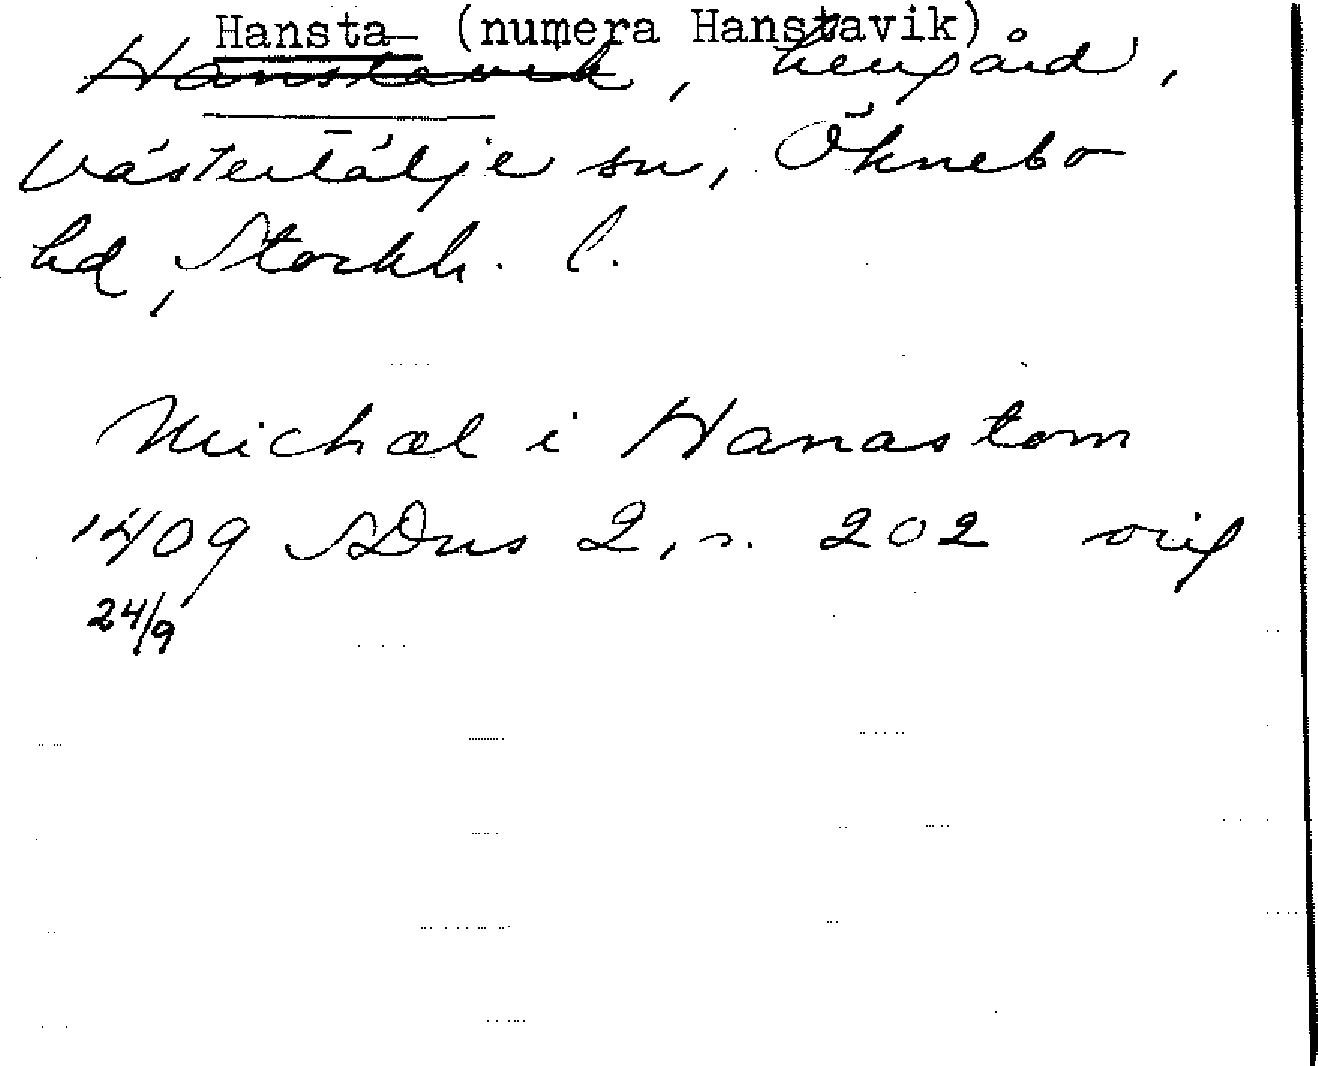 Hansta (numera Hanstavik)
Hanstavik, herrgård,
Västertälje sn, Öknebo
hd, Stockh. l.
Michæl i Hanastom
1409 SDns 2, s. 202 orig
24/9